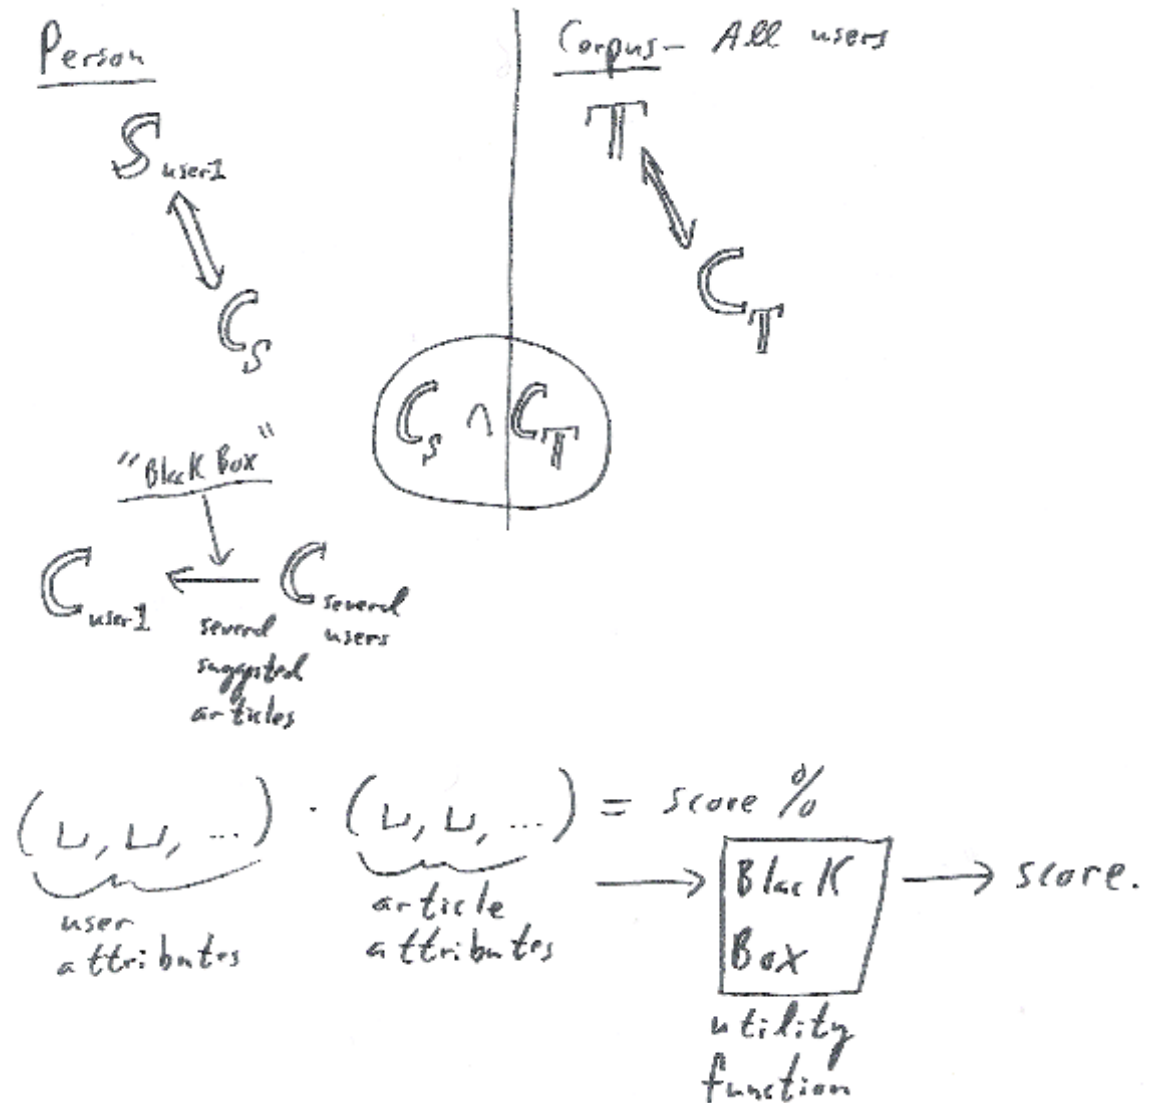 Person
S user1
C S
Corpus - All users
T
C T
C S ∩ C T
"Black Box"
C user1 ← C several users
several
suggested
articles
(⊔, ⊔, ...) · (⊔, ⊔, ...) = score %
user
attributes
article
attributes
→ Black
Box → score.
utility
function